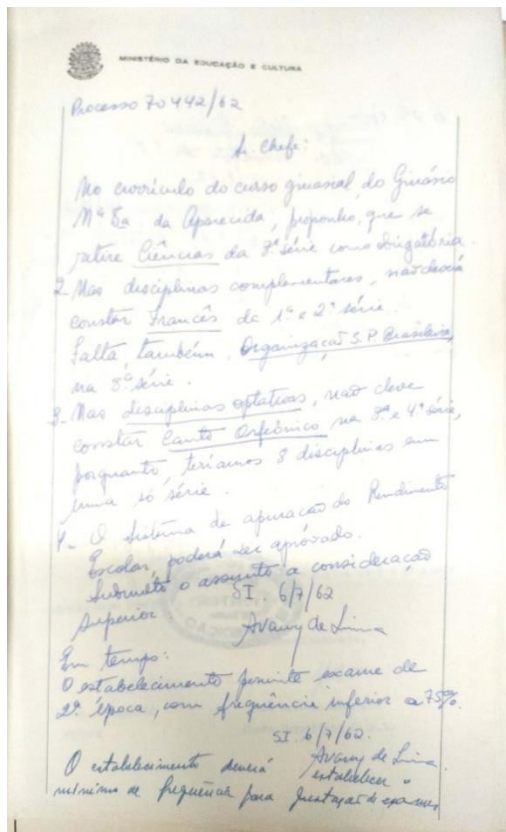 MINISTÉRIO DA EDUCAÇÃO E CULTURA
Processo 70442/62
Sr. Chefe:
No currículo do curso ginasial do Ginásio
Nª Sa. da Aparecida, proponho, que se
retire Ciências da 3ª série como obrigatória.
2- Nas disciplinas complementares, não deverá
constar Francês da 1ª e 2ª série.
Falta, também, Organização S.P. Brasileira,
na 3ª série.
3- Nas disciplinas optativas, não deve
constar Canto Orfeônico na 3ª e 4ª série,
porquanto, teríamos 8 disciplinas em
uma só série.
4- O Sistema de apuração do Rendimento
Escolar, poderá ser aprovado.
Submeto o assunto a consideração
superior.
SI 6/7/62
Avany de Lima
Em tempo:
O estabelecimento permite exame de
2ª época, com frequência inferior a 75%.
SI. 6/7/62.
Avany de Lima.
O estabelecimento deverá estabelecer o
mínimo de frequência para prestação de exames